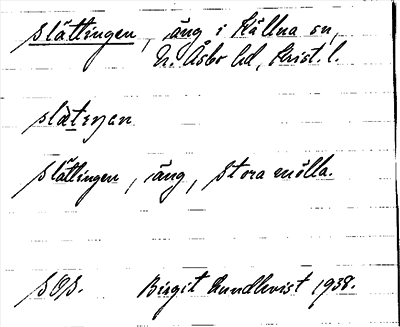 Slättingen, äng i Källna sn,
N. Åsbo hd, Krist. l.
slàtıŋen
Slättingen, äng, Stora mölla.
SOS. Birgit Lundkvist 1938.